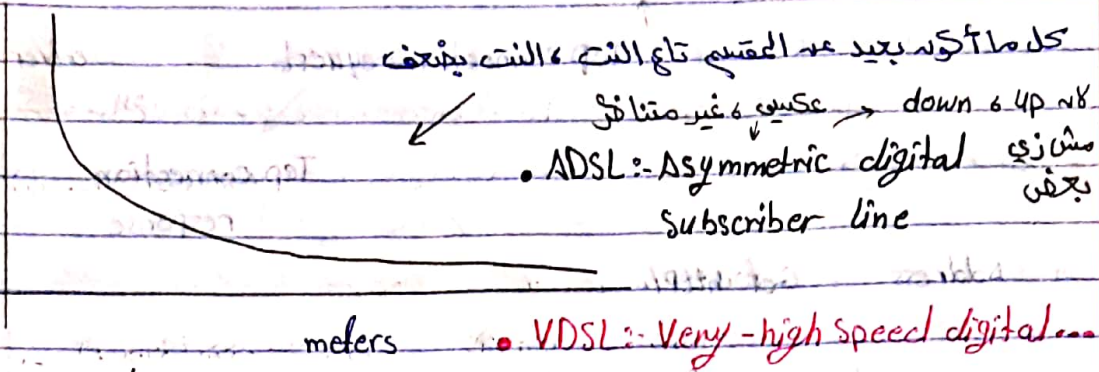 كل ما أكون بعيد عن المقسم تاع النت، النت بضعف
عكسي، غير متناظر → down، up لان
مش زي
بعض
• ADSL:- Asymmetric digital
subscriber line
meters
• VDSL:- Very-high speed digital...